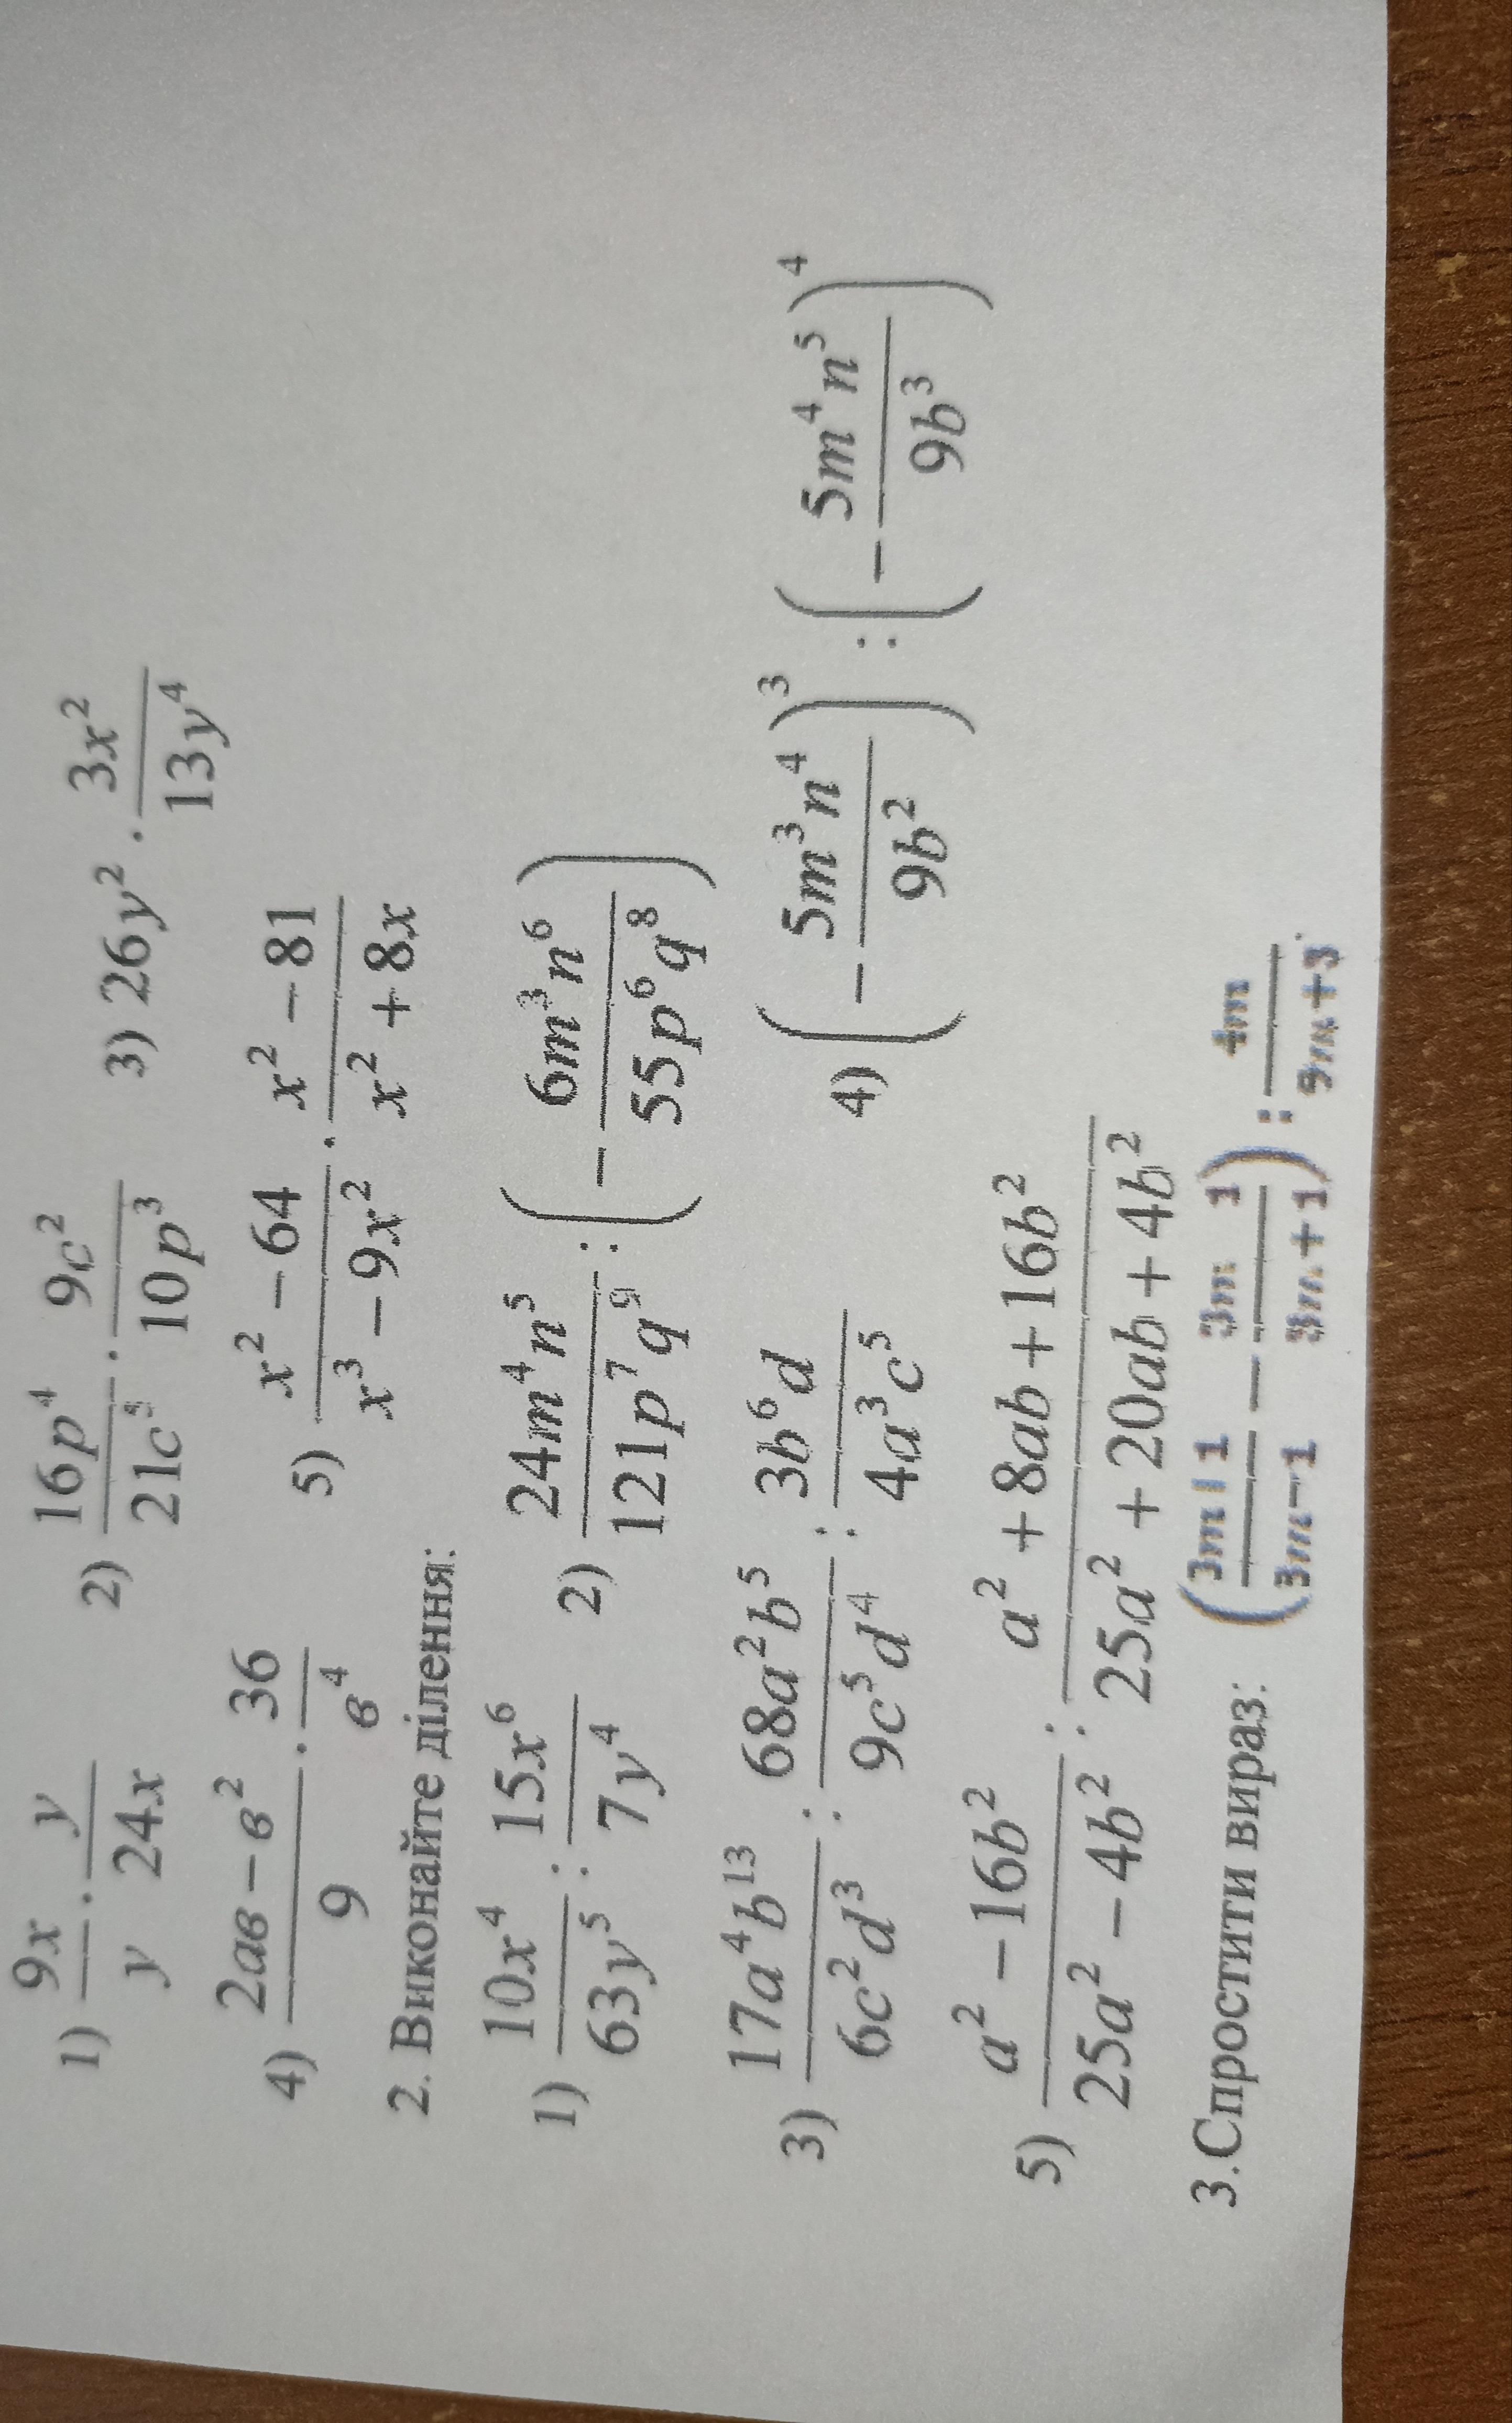 1) \frac{9x}{y} \cdot \frac{y}{24x} 2) \frac{16p^4}{21c^5} \cdot \frac{9c^2}{10p^3} 3) 26y^2 \cdot \frac{3x^2}{13y^4}
4) \frac{2ав - в^2}{9} \cdot \frac{36}{в^4} 5) \frac{x^2 - 64}{x^3 - 9x^2} \cdot \frac{x^2 - 81}{x^2 + 8x}
2. Виконайте ділення:
1) \frac{10x^4}{63y^5} : \frac{15x^6}{7y^4} 2) \frac{24m^4n^5}{121p^7q^9} : \left(-\frac{6m^3n^6}{55p^6q^8}\right)
3) \frac{17a^4b^{13}}{6c^2d^3} : \frac{68a^2b^5}{9c^5d^4} : \frac{3b^6d}{4a^3c^5} 4) \left(-\frac{5m^3n^4}{9b^2}\right)^3 : \left(-\frac{5m^4n^5}{9b^3}\right)^4
5) \frac{a^2 - 16b^2}{25a^2 - 4b^2} : \frac{a^2 + 8ab + 16b^2}{25a^2 + 20ab + 4b^2}
3.Спростити вираз: \left(\frac{3m+1}{3m-1} - \frac{3m-1}{3m+1}\right) : \frac{4m}{9m+3}.